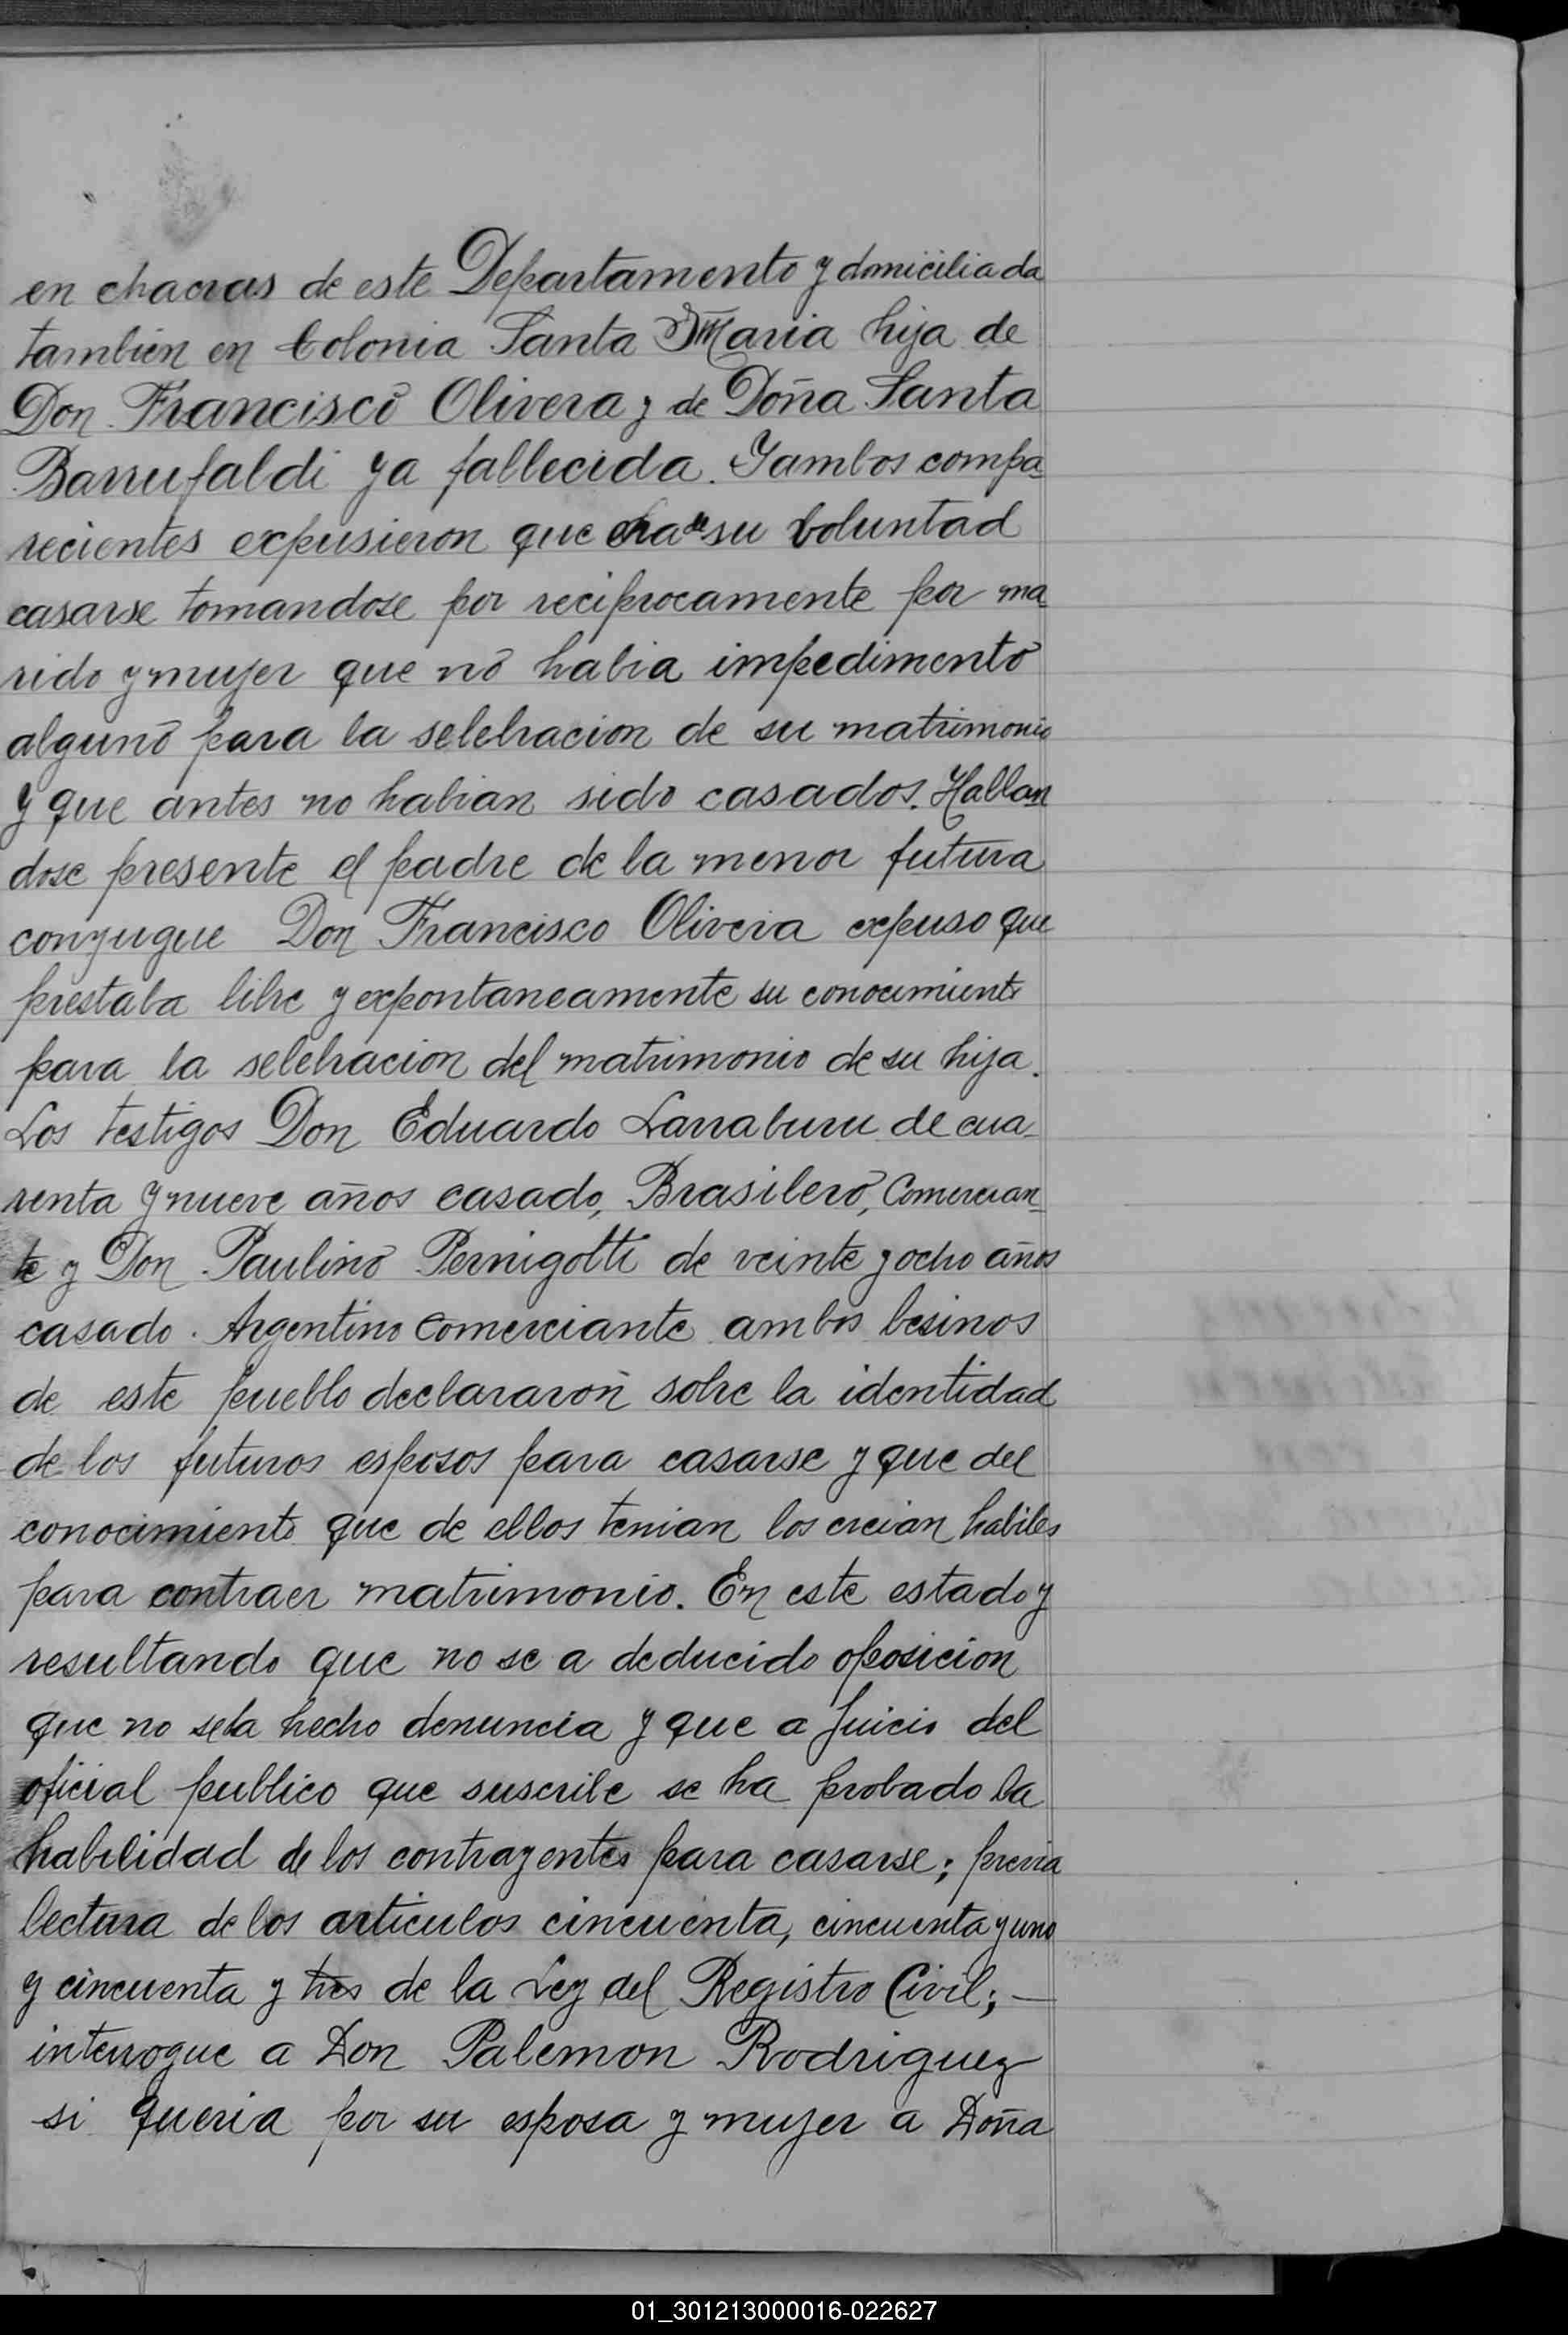 en chacras de este Departamento y domiciliada
tambien en Colonia Santa Maria hija de
Don Francisco Olivera y de Doña Santa
Barrufaldi ya fallecida. Y ambos compa-
recientes expusieron que era su boluntad
casarse tomandose por reciprocamente por ma-
rido y mujer que no habia impedimento
alguno para la selebracion de su matrimonio
y que antes no habian sido casados. Hallan-
dose presente el padre de la menor futura
conyugue Don Francisco Olivera expuso que
prestaba libre y expontaneamente su conocimiento
para la selebracion del matrimonio de su hija.
Los testigos Don Eduardo Larraburu de cua-
renta y nueve años casado, Brasilero, Comercian-
te y Don Paulino Pernigotti de veinte y ocho años
casado. Argentino Comerciante ambos besinos
de este pueblo declararon sobre la identidad
de los futuros esposos para casarse y que del
conocimiento que de ellos tenian los creian habiles
para contraer matrimonio. En este estado y
resultando que no se a deducido oposicion
que no se ha hecho denuncia y que a juicio del
oficial publico que suscribe se ha probado la
habilidad de los contrayentes para casarse; previa
lectura de los articulos cincuenta, cincuenta y uno
y cincuenta y tres de la Ley del Registro Civil; —
interrogue a Don Palemon Rodriguez
si queria por su esposa y mujer a Doña
01_301213000016-022627